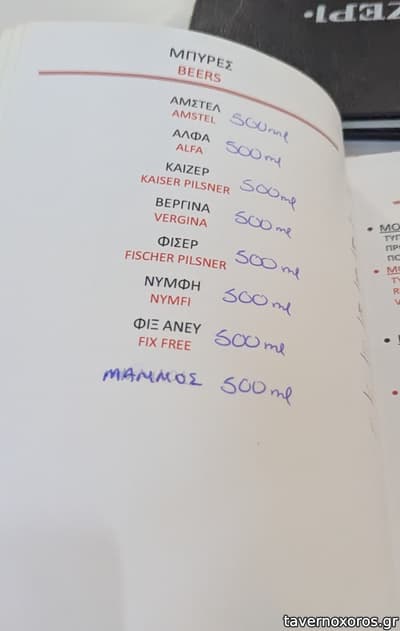 ΖΕΡΙ.
ΜΠΥΡΕΣ
BEERS
ΑΜΣΤΕΛ
AMSTEL 500ml
ΑΛΦΑ
ALFA 500ml
ΚΑΙΖΕΡ
KAISER PILSNER 500ml
ΒΕΡΓΙΝΑ
VERGINA 500ml
ΦΙΣΕΡ
FISCHER PILSNER 500ml
ΝΥΜΦΗ
NYMFI 500ml
ΦΙΞ ΑΝΕΥ
FIX FREE 500ml
ΜΑΜΜΟΣ 500ml
tavernoxoros.gr